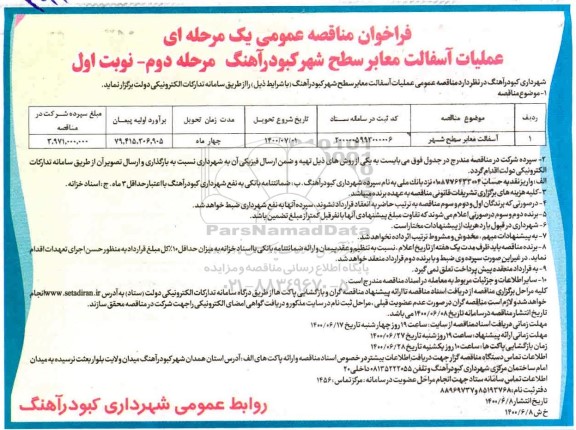 فراخوان مناقصه عمومی یک مرحله ای
عملیات آسفالت معابر سطح شهر کبودرآهنگ مرحله دوم- نوبت اول
شهرداری کبودرآهنگ در نظر دارد مناقصه عمومی عملیات آسفالت معابر سطح شهر کبودرآهنگ (با شرایط ذیل) را از طریق سامانه تدارکات الکترونیکی دولت برگزار نماید.
۱- موضوع مناقصه
ردیف موضوع مناقصه کد ثبت در سامانه ستاد تاریخ شروع تحویل مدت زمان تحویل برآورد اولیه پیمان مبلغ سپرده شرکت در مناقصه
۱ آسفالت معابر سطح شهر ۲۰۰۰۰۰۵۹۹۲۰۰۰۰۰۶ ۱۴۰۰/۰۷/۰۱ چهار ماه ۷۹.۴۱۵.۳۰۶.۹۰۵ ۳.۹۷۱.۰۰۰.۰۰۰
۲- سپرده شرکت در مناقصه مندرج در جدول فوق می بایست به یکی از روش های ذیل تهیه و ضمن ارسال فیزیکی آن به شهرداری نسبت به بارگذاری و ارسال تصویر آن از طریق سامانه تدارکات
الکترونیکی دولت اقدام گردد.
الف: واریز نقد به حساب ۰۱۰۸۷۷۶۴۳۳۰۰۴ نزد بانک ملی به نام سپرده شهرداری کبودرآهنگ. ب: ضمانتنامه بانکی به نفع شهرداری کبودرآهنگ با اعتبار حداقل ۳ ماه. ج: اسناد خزانه.
۳- کلیه هزینه های برگزاری تشریفات قانونی مناقصه به عهده برنده میباشد.
۴- در صورتی که برندگان اول و دوم و سوم مناقصه به ترتیب حاضر به انعقاد قرارداد نشوند، سپرده آنها به نفع شهرداری ضبط خواهد شد.
۵- برنده دوم و سوم در صورتی اعلام می شوند که تفاوت مبلغ پیشنهادی آنها با نفر قبل کمتر از مبلغ تضمین باشد.
۶- شهرداری در قبول یا رد هر یک از پیشنهادات مختار است.
۷- به پیشنهادات مبهم، مخدوش و مشروط ترتیب اثر داده نخواهد شد.
۸- برنده مناقصه باید ظرف مدت یک هفته از تاریخ اعلام، نسبت به تنظیم و عقد پیمان و ارائه ضمانتنامه بانکی یا اسناد خزانه به میزان حداقل ۱۰٪ کل مبلغ قرارداد به منظور حسن اجرای تعهدات اقدام
نماید. در غیر این صورت سپرده وی ضبط و با برنده دوم قرارداد منعقد خواهد شد.
۹- به قرارداد منعقده پیش پرداخت تعلق نمی گیرد.
۱۰- سایر اطلاعات و جزئیات مربوط به معامله در اسناد مناقصه مندرج است.
کلیه مراحل برگزاری مناقصه از دریافت اسناد مناقصه تا ارائه پیشنهاد مناقصه گران و بازگشایی پاکت ها از طریق درگاه سامانه تدارکات الکترونیکی دولت (ستاد) به آدرس www.setadiran.ir انجام
خواهد شد و لازم است مناقصه گران در صورت عدم عضویت قبلی، مراحل ثبت نام در سایت مذکور و دریافت گواهی امضای الکترونیکی را جهت شرکت در مناقصه محقق سازند.
تاریخ انتشار مناقصه در سامانه تاریخ ۱۴۰۰/۰۶/۰۸ می باشد.
مهلت زمانی دریافت اسناد مناقصه از سایت: ساعت ۱۹ روز چهار شنبه تاریخ ۱۴۰۰/۰۶/۱۷
مهلت زمانی ارائه پیشنهاد: ساعت ۱۹ روز شنبه تاریخ ۱۴۰۰/۰۶/۲۷
زمان بازگشایی پاکت ها: ساعت ۱۰ روز یکشنبه تاریخ ۱۴۰۰/۰۶/۲۸
اطلاعات تماس دستگاه مناقصه گزار جهت دریافت اطلاعات بیشتر در خصوص اسناد مناقصه و ارائه پاکت های الف: آدرس استان همدان شهر کبودرآهنگ میدان ولایت بلوار بعثت نرسیده به میدان
امام ساختمان مرکزی شهرداری کبودرآهنگ و تلفن ۰۸۱۳۵۲۲۲۰۵۵ داخلی ۲۰
اطلاعات تماس سامانه ستاد جهت انجام مراحل عضویت در سامانه: مرکز تماس: ۱۴۵۶
دفتر ثبت نام: ۸۵۱۹۳۷۶۸ و ۸۸۹۶۹۷۳۷
تاریخ انتشار ۱۴۰۰/۶/۸
خ ش ۱۴۰۰/۶/۸
روابط عمومی شهرداری کبودرآهنگ
ParsNamadData
پایگاه اطلاع رسانی مناقصه و مزایده
۰۲۱-۸۸۳۴۹۶۷۰-۵